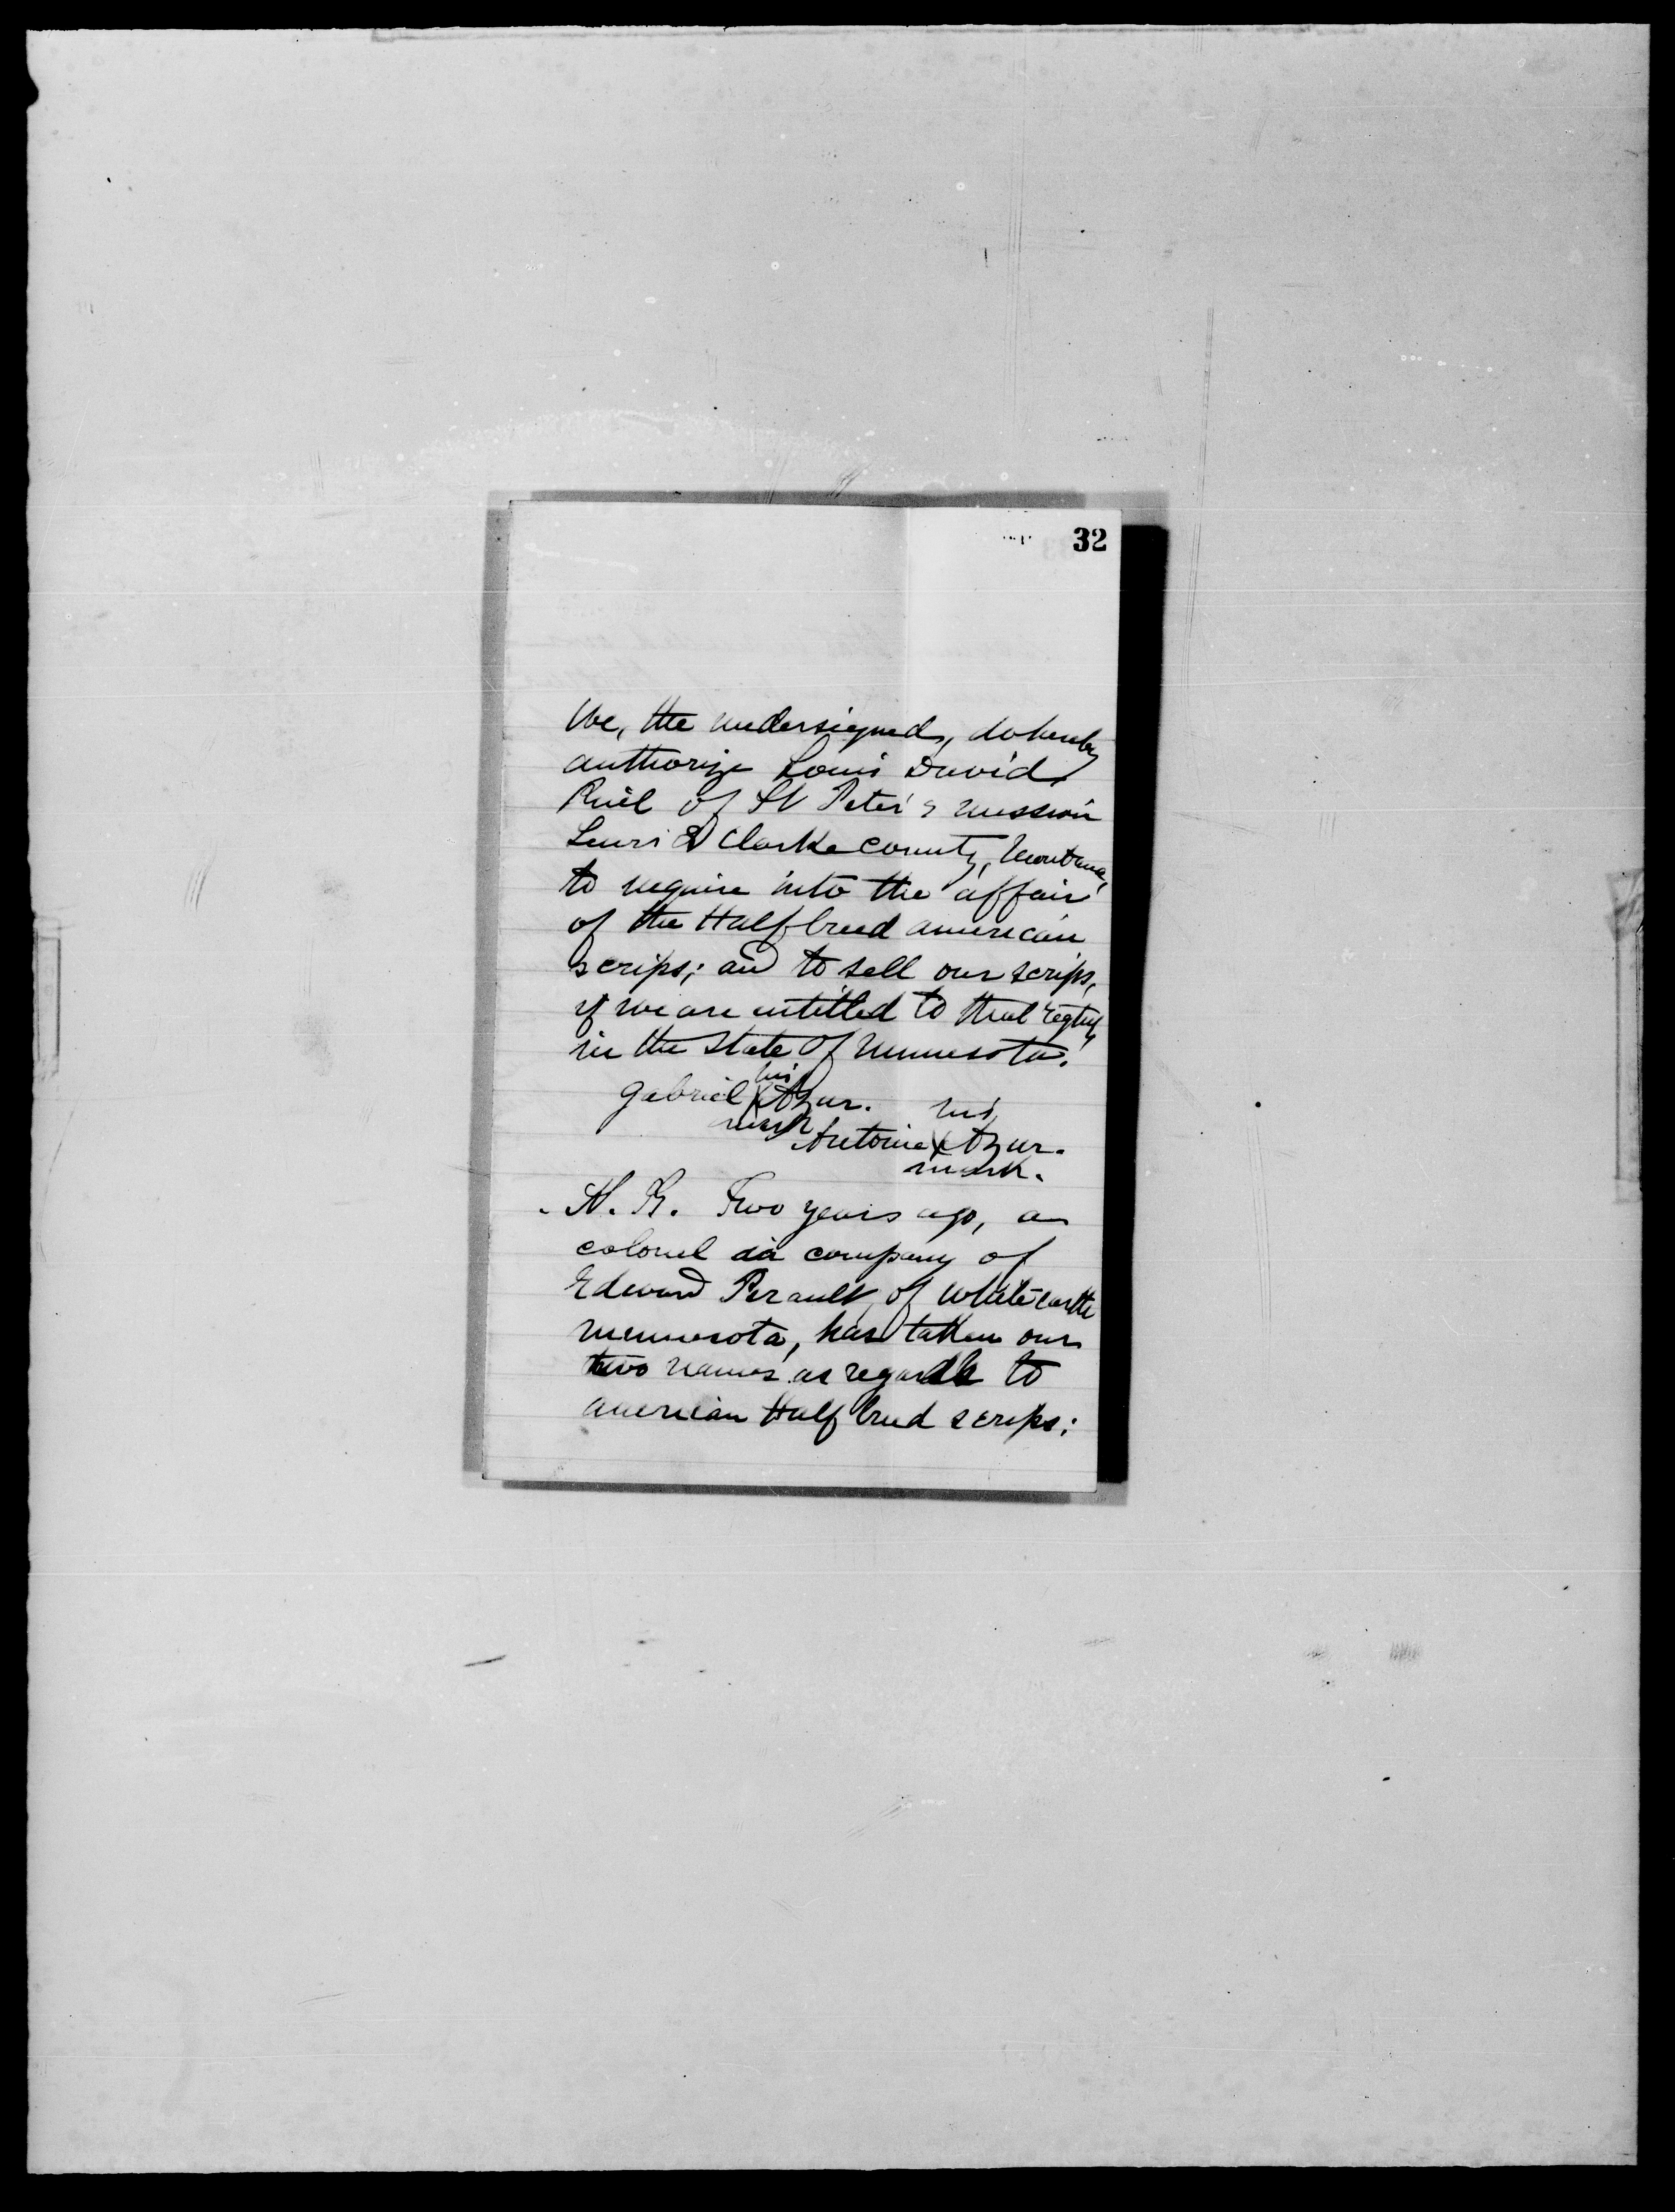 32
We, the undersigned, do hereby
authorize Louis David
Riel of St Peter's mission
Lewis & Clarke county, Montana,
to inquire into the affair
of the Half breed american
scrips; and to sell our scrips,
if we are entitled to that right
in the state of Minnesota.
his
Gabriel X Azur.
mark
his
Antoine X Azur.
mark.
N. B. Two years ago, a
colonel in company of
Edward Perault, of White earth
Minnesota, has taken our
two names as regards to
american Half breed scrips;